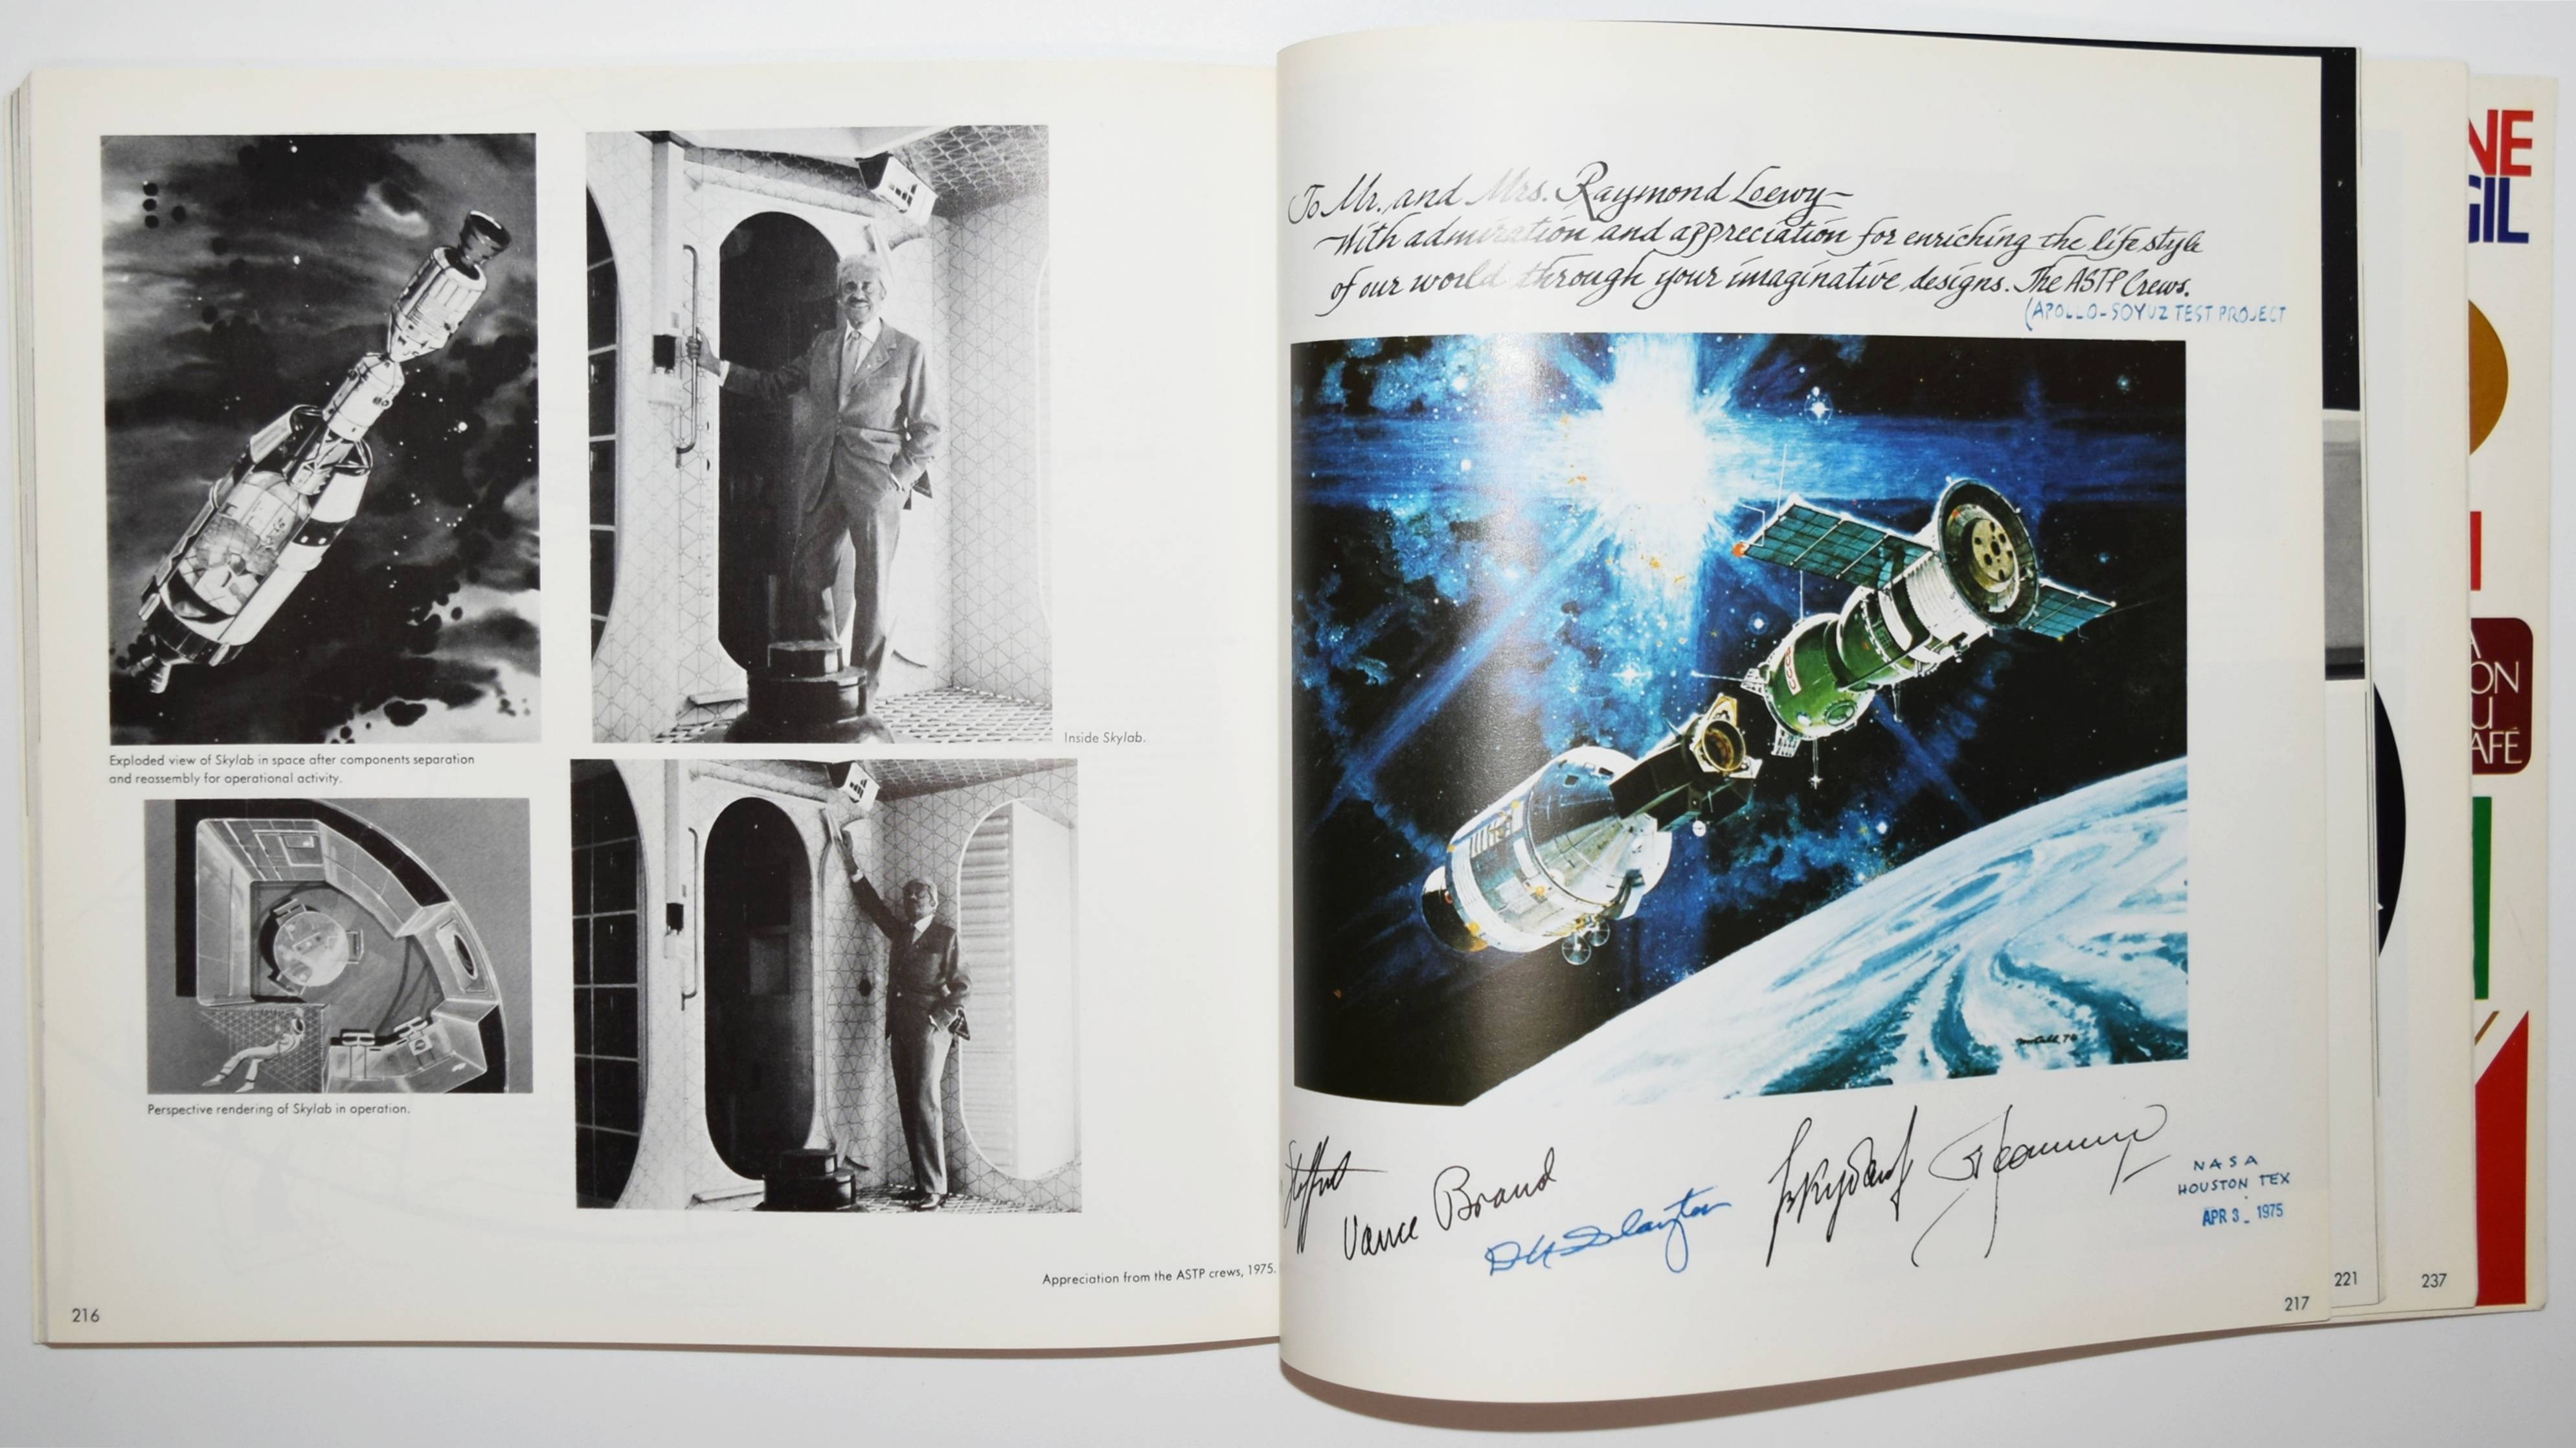 Exploded view of Skylab in space after components separation
and reassembly for operational activity.
Inside Skylab.
Perspective rendering of Skylab in operation.
Appreciation from the ASTP crews, 1975.
216
To Mr. and Mrs. Raymond Loewy—
With admiration and appreciation for enriching the life style
of our world through your imaginative designs. The ASTP Crews.
(APOLLO-SOYUZ TEST PROJECT
Vance Brand
DK Slayton
NASA
HOUSTON TEX
APR 3 _ 1975
217
221
237
NE
GIL
A
ON
U
AFÉ